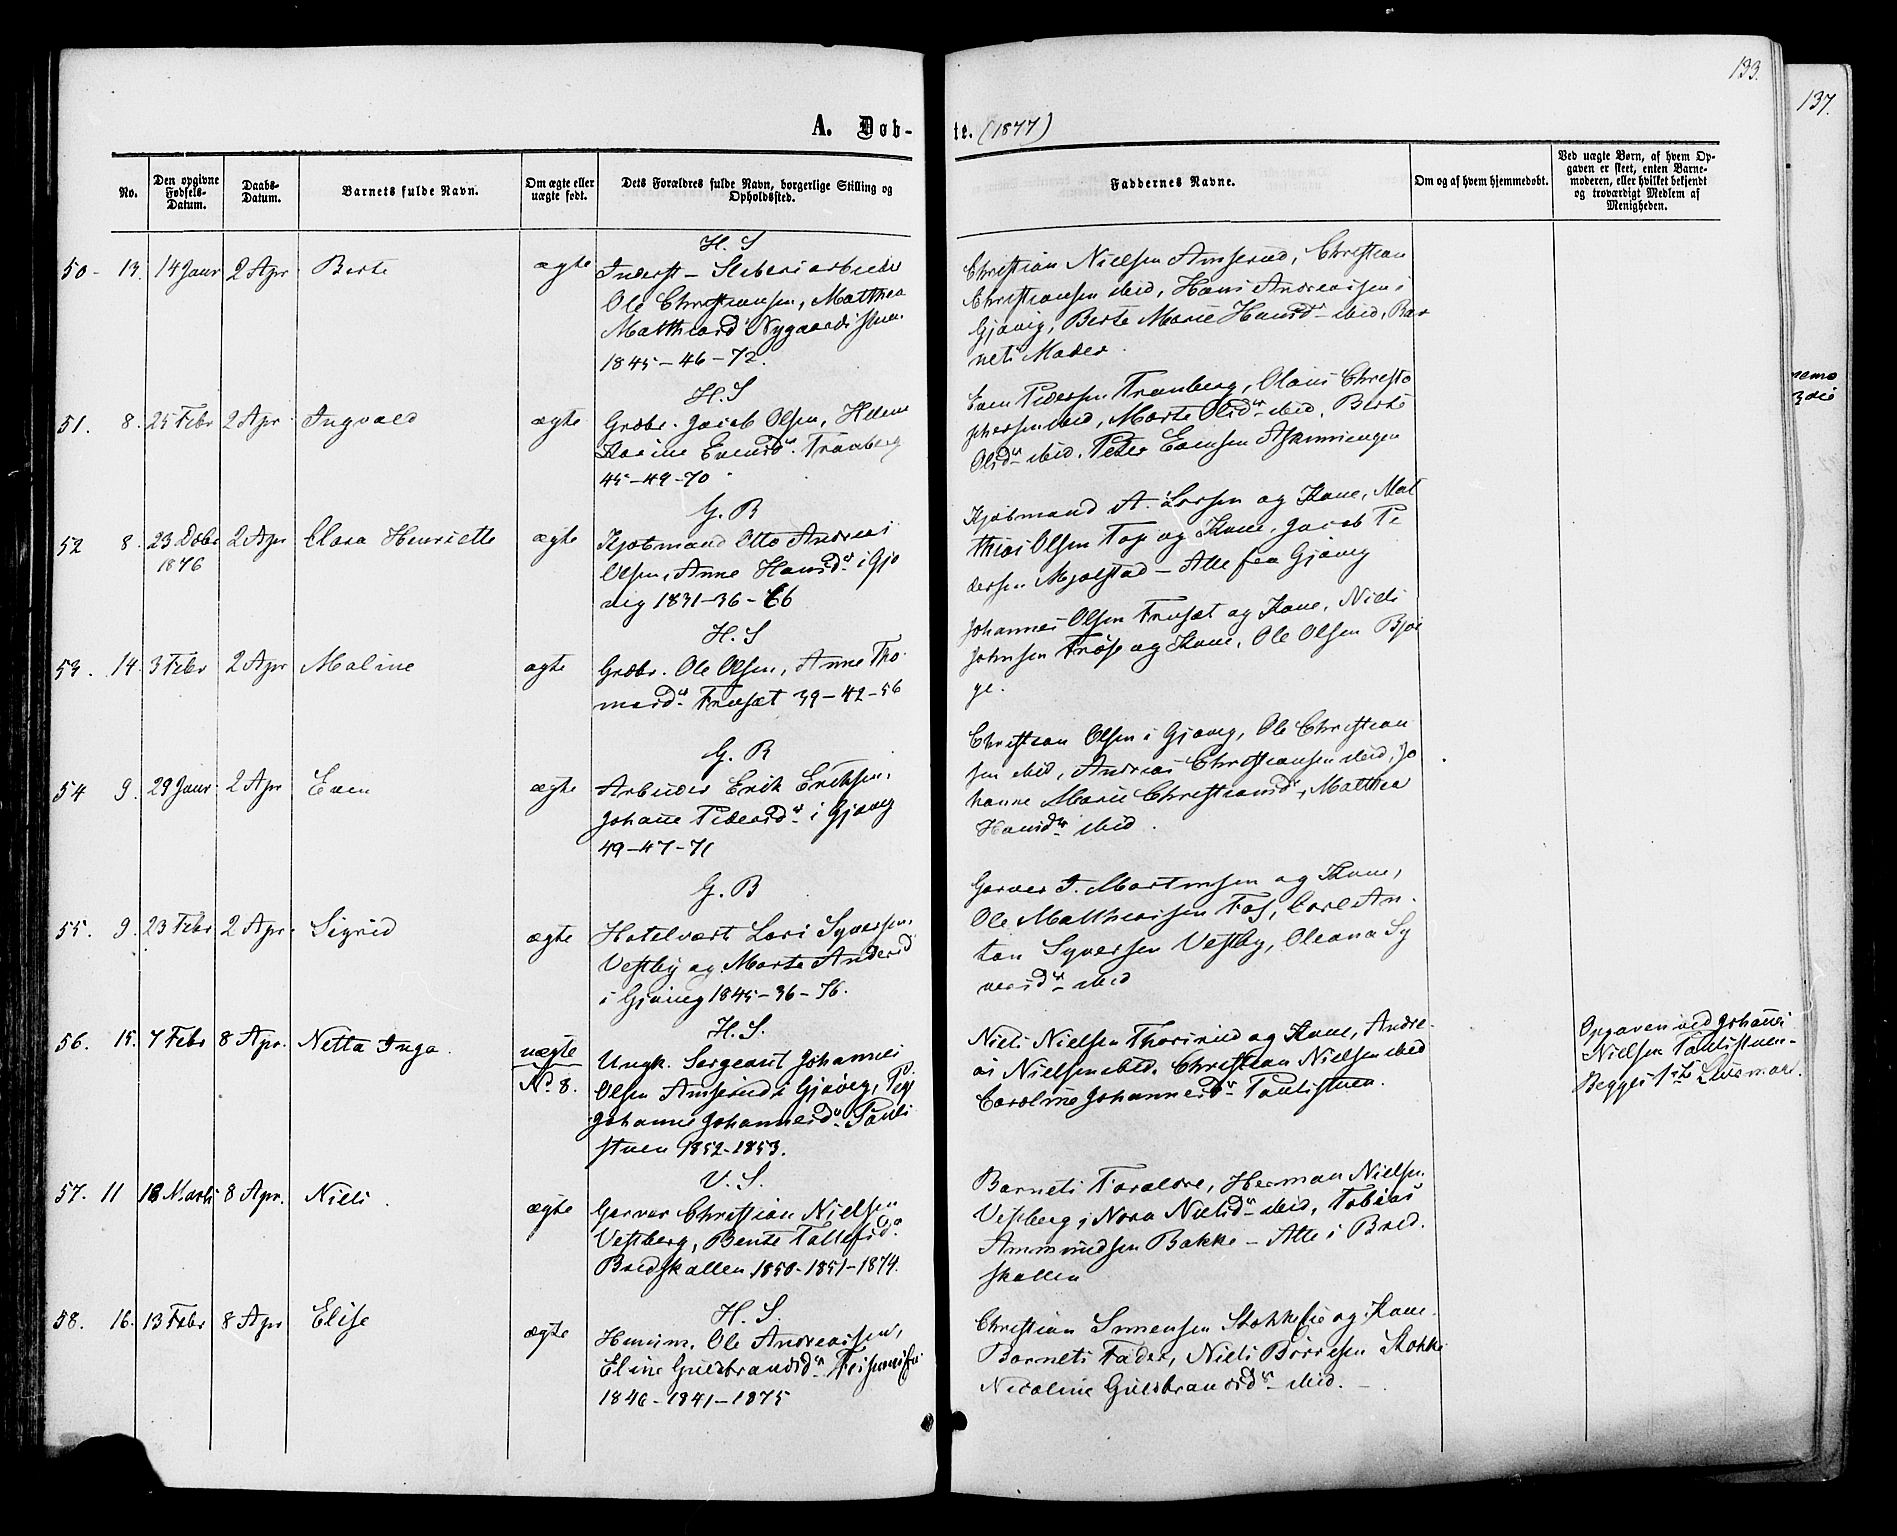 133.
137.
A. Døb-
te. (1877)
No.
Den opgivne Fødsels-Datum.
Daabs-Datum.
Barnets fulde Navn.
Om ægte eller uægte født.
Dets Forældres fulde Navn, borgerlige Stilling og Opholdssted.
Faddernes Navne.
Om og af hvem hjemmedøbt.
Ved uægte Børn, af hvem Op-
gaven er skeet, enten Barne-
moderen, eller hvilket bekjendt
og troværdigt Medlem af
Menigheden.
H. S
50 - 13. 14 Janr 2 Apr Berte ægte
Inderst - Sliberiarbeider
Ole Christiansen, Matthea
Matthiasdr Nygaardsstuen
1845-46-72.
Christian Nielsen Amserud, Christian
Christiansen ibid, Hans Andreassen i
Gjøvig, Berte Marie Hansdr ibid, Bar
nets Moder.
H. S
51. 8. 25 Febr 2 Apr Ingvald ægte
Grdbr. Jacob Olsen, Helene
Karine Evensdr Tranberg
45-49-70.
Even Pedersen Tranberg, Olaus Christo
phersen ibid, Marte Olsdr ibid, Berte
Olsdr ibid. Peter Evensen
G. B
52 8. 23 Decbr 1876 2 Apr Clara Henriette ægte
Kjøbmand Otto Andreas
Olsen, Anne Hansdr i Gjø
vig 1831-36-66
Kjøbmand A. Larsen og Kone, Mat
thias Olsen Fop og Kone, Jacob Pe
dersen Mjølstad - Alle fra Gjøvig
H. S
53. 14. 3 Febr 2 Apr Maline ægte
Grdbr. Ole Olsen, Anne Tho-
masdr Fruset 39-42-56
Johannes Olsen Fruset og Kone, Niels
Johnsen og Kone, Ole Olsen Bjør
ge.
G. B
54 9. 29 Janr 2 Apr Even ægte
Arbeider Erik Eriksen,
Johanne Pedersdr i Gjøvig
49-47-71
Christian Olsen i Gjøvig, Ole Christian
sen ibid, Andreas Christiansen ibid, Jo
hanne Marie Christiansdr, Matthea
Hansdr ibid.
G. B
55. 9. 23 Febr 2 Apr Sigrid ægte
Hotelvært Lars Syversen
Vestby og Marte Andersd
i Gjøvig 1845-36-76.
Garver J. Martinsen og Kone,
Ole Matthiassen Fos, Carl An-
ton Syversen Vestby, Oleana Sy
versdr ibid
H. S.
56. 15. 7 Febr 8 Apr. Netta Inga. uægte
No. 8.
Ungk. Sergeant Johannes
Olsen Amserud i Gjøvig, Pige
Johanne Johannesdr Pauls
stuen 1852-1853.
Niels Nielsen Thorsrud og Kone, Andre-
as Nielsen ibid. Christian Nielsen ibid
Caroline Johannesdr Paulsstuen.
Opgaven ved Johannes
Nielsen Paulsstuen-
Begges 1ste Leiermaal.
V. S.
57. 11 18 Marts 8 Apr. Niels. ægte
Garver Christian Nielsen
Vestberg, Bente Tollefsdr
Bredskallen 1850-1851-1874.
Barnets Forældre, Herman Nielsen
Vestberg, Nora Nielsdr ibid, Tobias
Ammundsen Bakke - Alle i Bred
skallen
H. S.
58. 16. 13 Febr 8 Apr Elise ægte
Husm. Ole Andreassen,
Eline Guldbrandsdr
1846-1841-1875
Christian Simensen Stokkeeie og Kone.
Barnets Fader, Niels Børresen Stokke
Nicoline Guldbrandsdr ibid. -